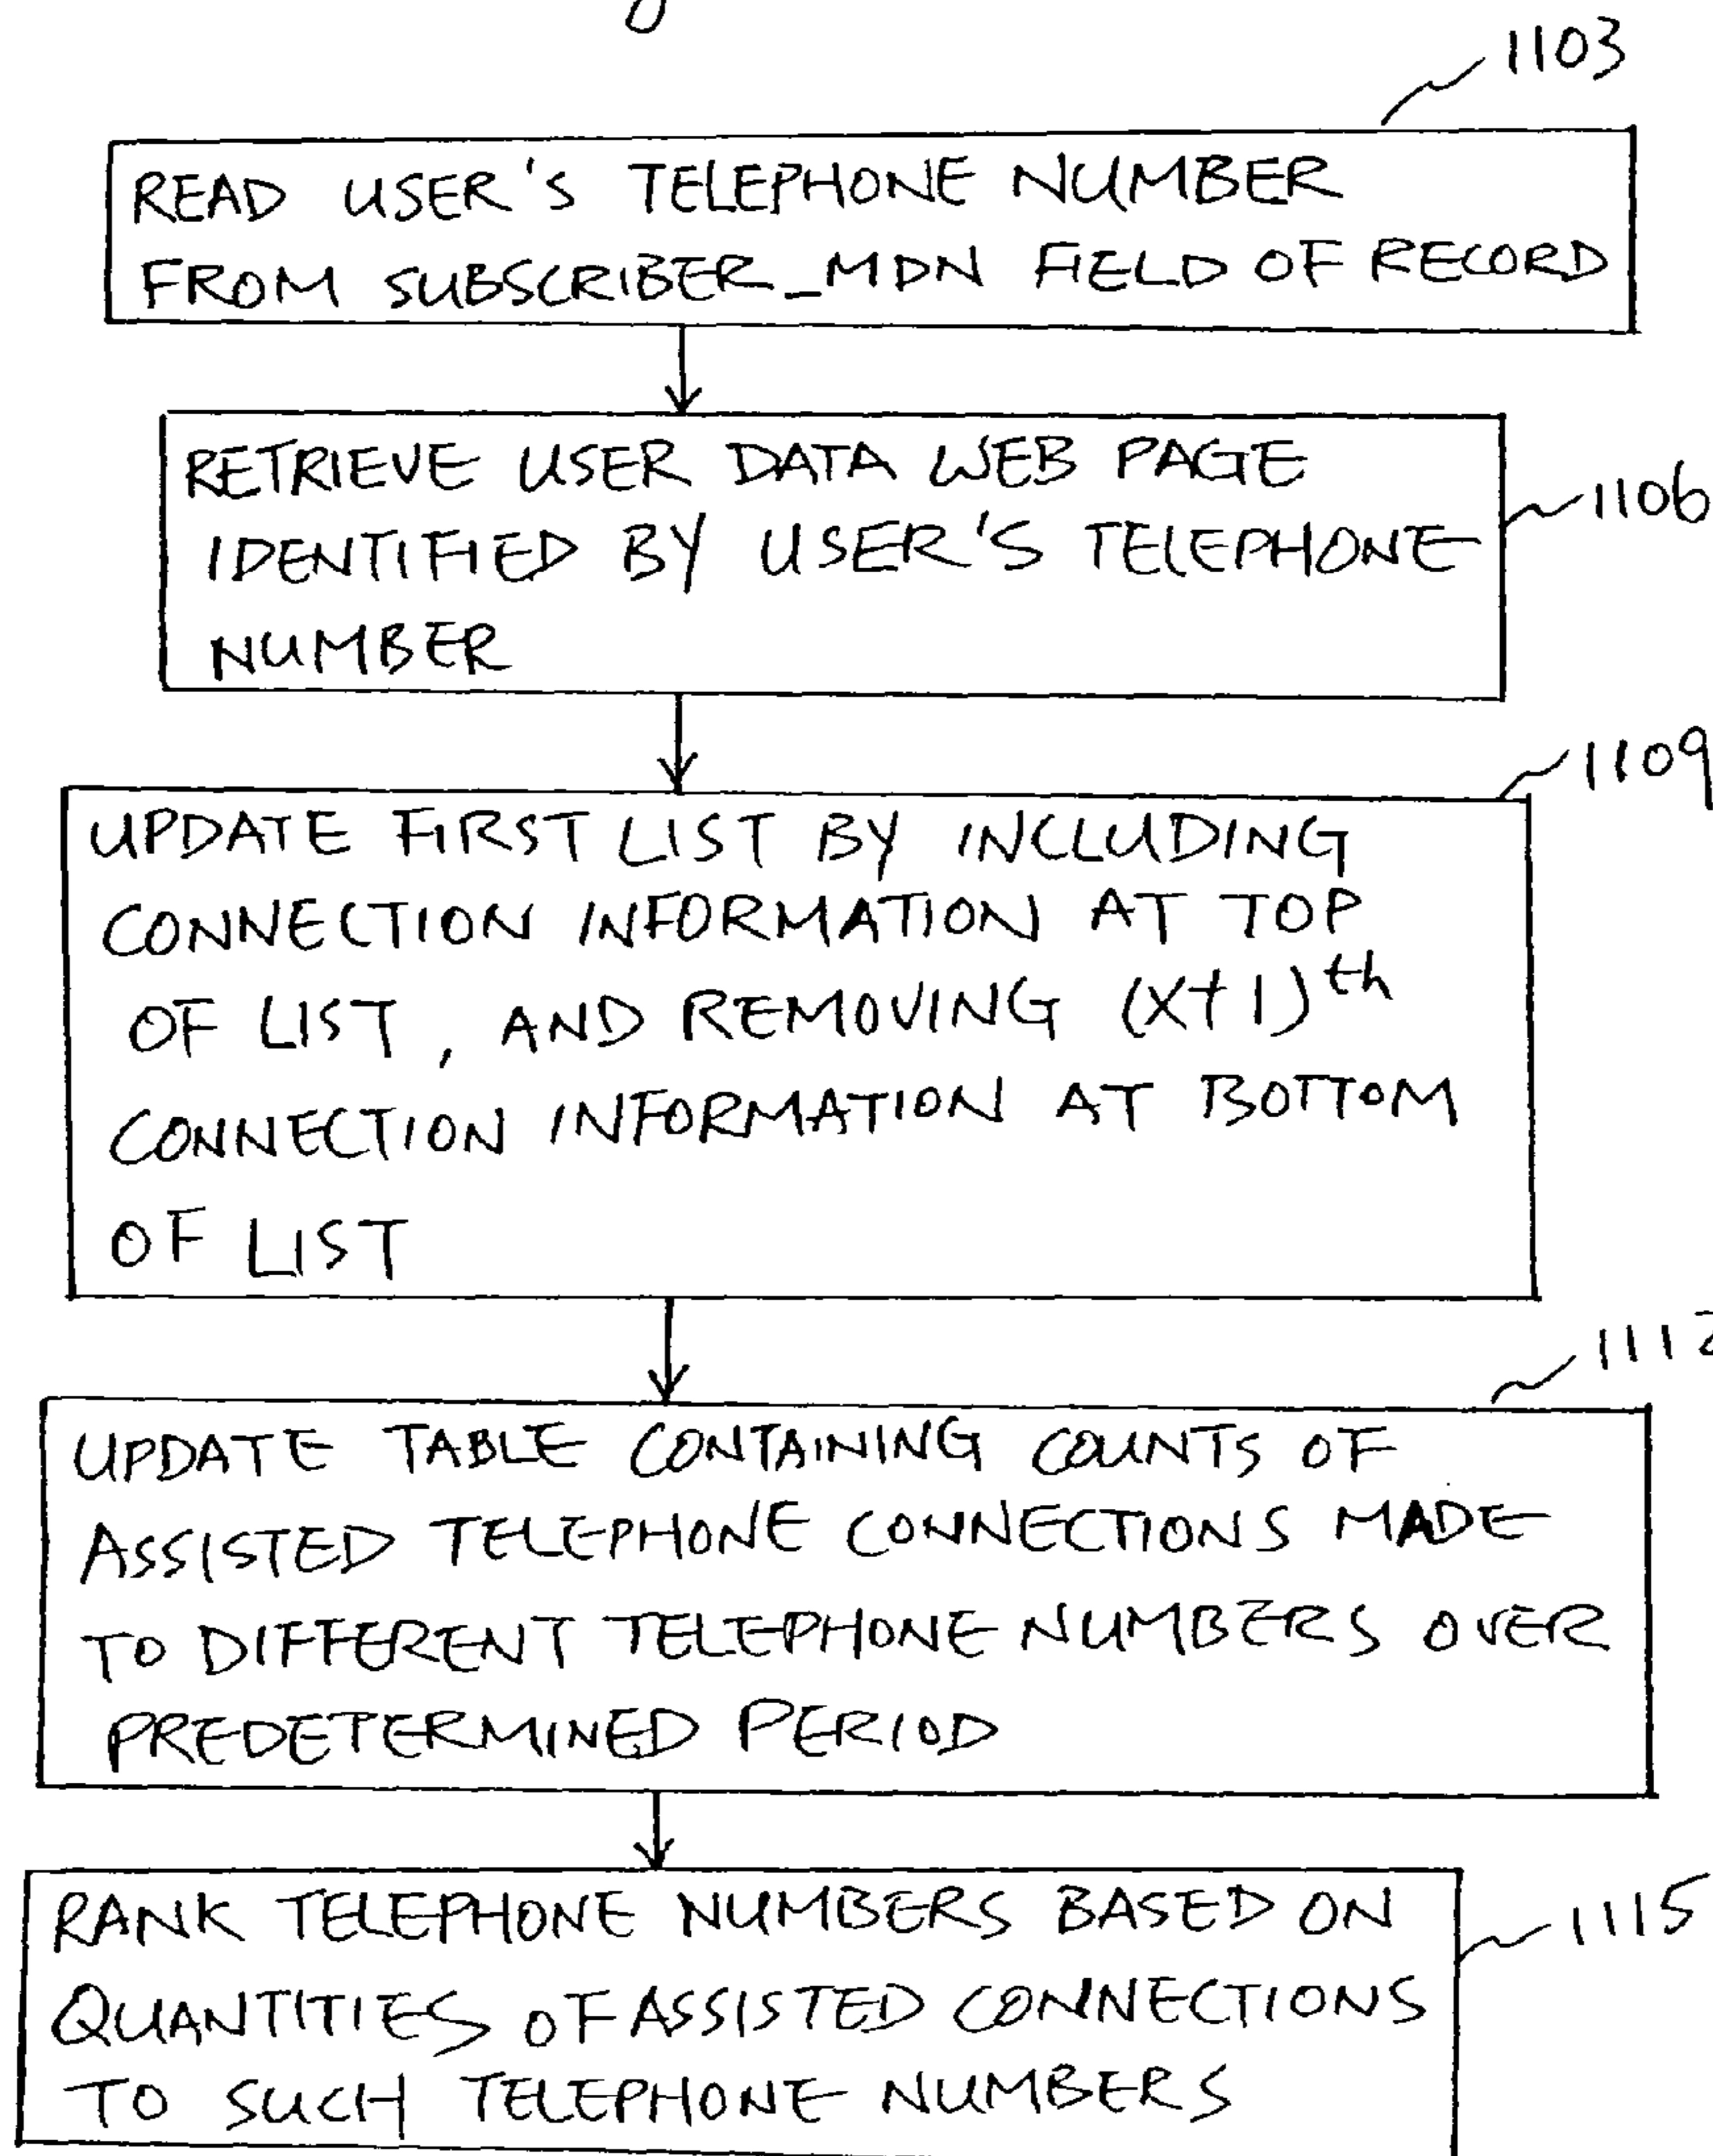 1103
READ USER'S TELEPHONE NUMBER
FROM SUBSCRIBER_MDN FIELD OF RECORD
RETRIEVE USER DATA WEB PAGE
IDENTIFIED BY USER'S TELEPHONE
NUMBER
1106
1109
UPDATE FIRST LIST BY INCLUDING
CONNECTION INFORMATION AT TOP
OF LIST, AND REMOVING (X+1)th
CONNECTION INFORMATION AT BOTTOM
OF LIST
1112
UPDATE TABLE CONTAINING COUNTS OF
ASSISTED TELEPHONE CONNECTIONS MADE
TO DIFFERENT TELEPHONE NUMBERS OVER
PREDETERMINED PERIOD
RANK TELEPHONE NUMBERS BASED ON
QUANTITIES OF ASSISTED CONNECTIONS
TO SUCH TELEPHONE NUMBERS
1115